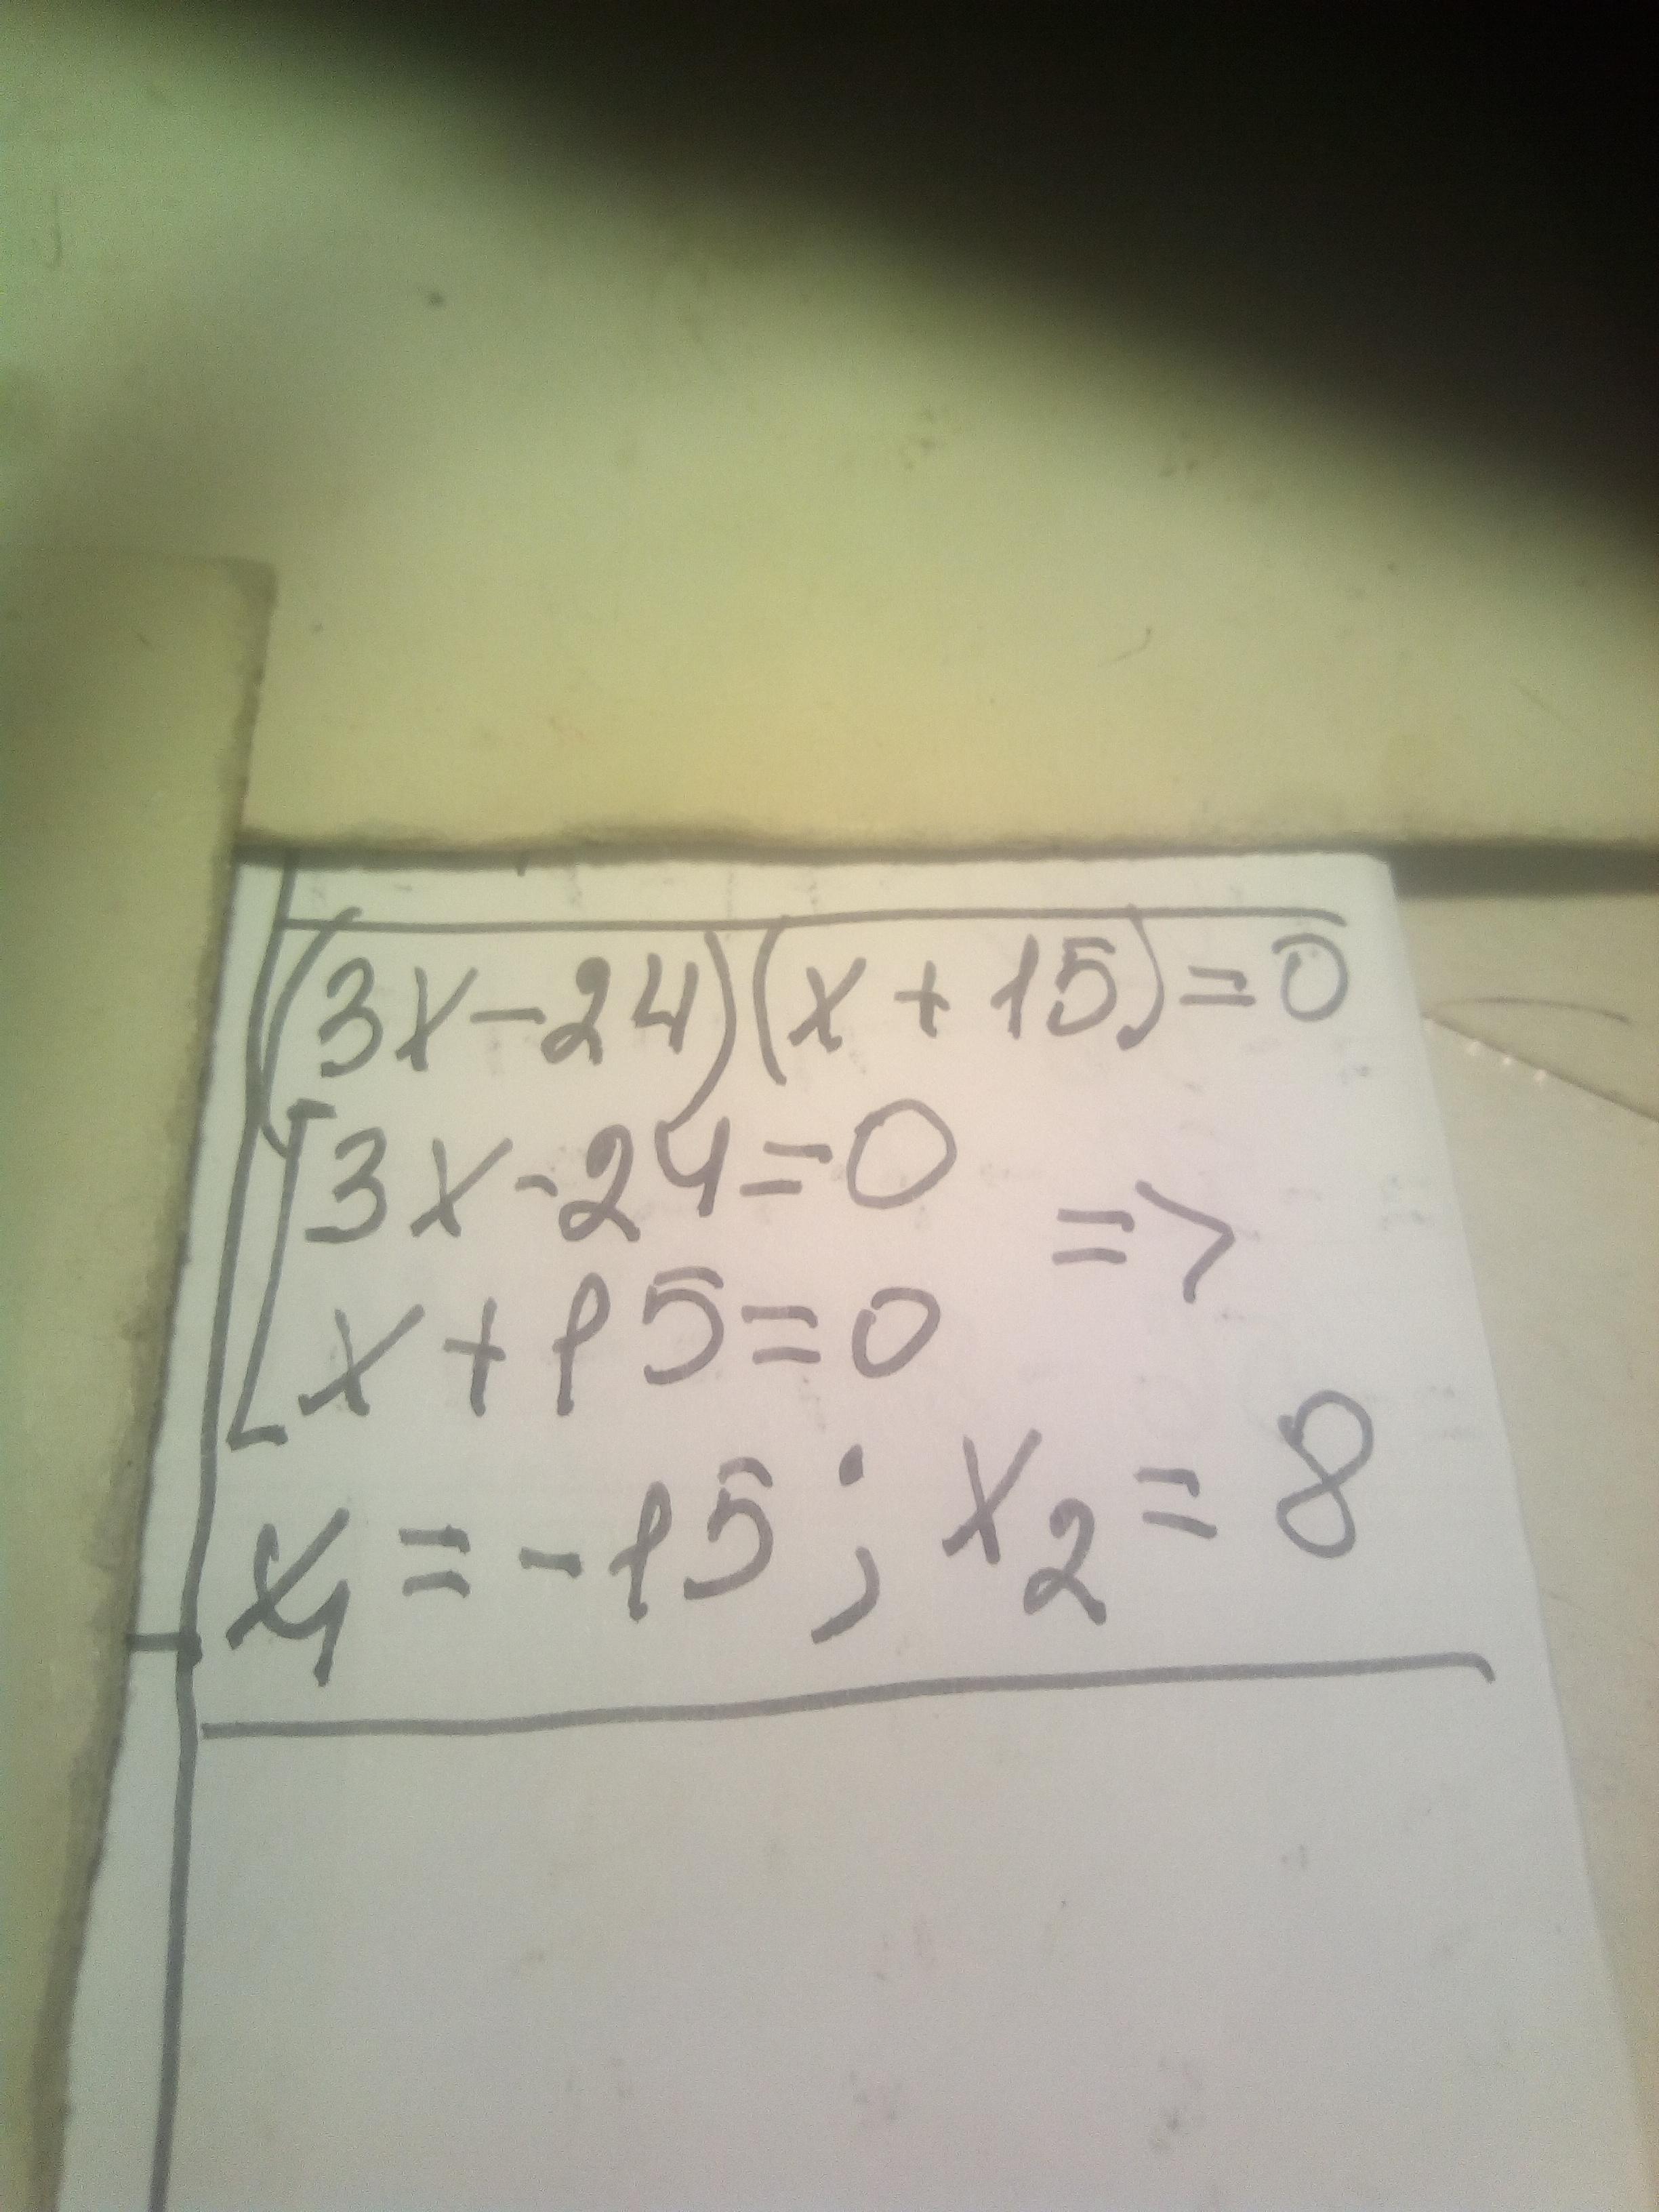 (3x-24)(x+15)=0
[3x-24=0
x+15=0 =>
x1=-15; x2=8